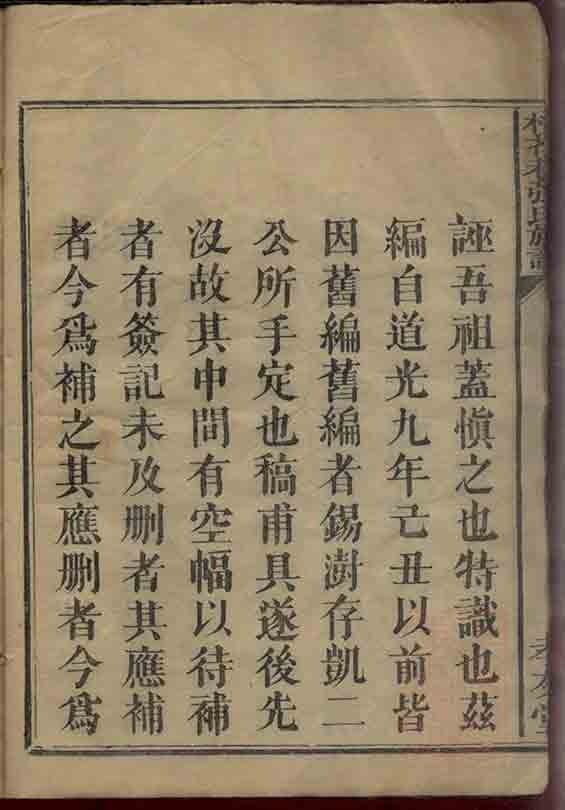 誣吾祖蓋慎之也特識也茲
編自道光九年己丑以前皆
因舊編舊編者錫澍存凱二
公所手定也稿甫具遂後先
沒故其中間有空幅以待補
者有簽記未及刪者其應補
者今爲補之其應刪者今爲
張氏族譜
孝友堂